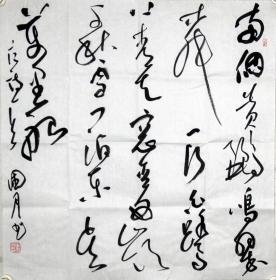 两個黄鹂鸣翠
柳一行白鹭
上青天窗含西岭
千秋雪门泊东吴
万里船